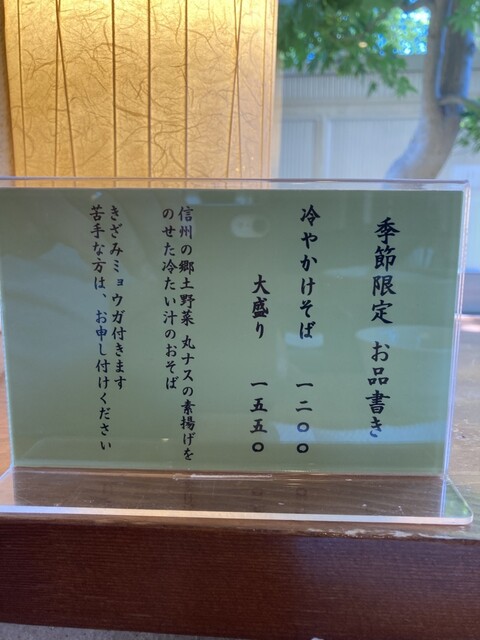 季節限定 お品書き
冷やかけそば 一二〇〇
大盛り 一五五〇
信州の郷土野菜 丸ナスの素揚げを
のせた冷たい汁のおそば
きざみミョウガ付きます
苦手な方は、お申し付けください